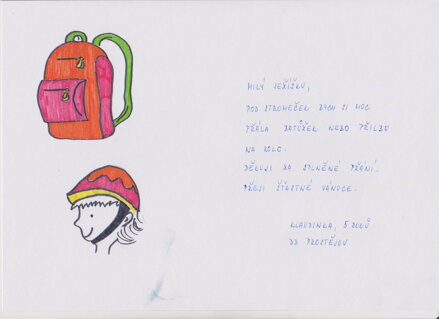 MILÝ JEŽÍŠKU,
POD STROMEČEK BYCH SI MOC
PŘÁLA BATŮŽEK NEBO PŘILBU
NA KOLO.
DĚKUJI ZA SPLNĚNÉ PŘÁNÍ.
PŘEJI ŠŤASTNÉ VÁNOCE.
KLAUDINKA, 5 ROKŮ
DD PROSTĚJOV